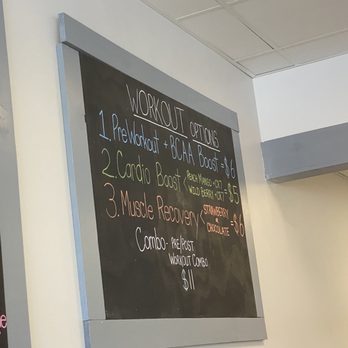 WORKOUT OPTIONS
1. PreWorkout + BCAA Boost = $6
2. Cardio Boost < PEACH MANGO + CR7 = $5
WILD BERRY + CR7
3. Muscle Recovery < STRAWBERRY OR CHOCOLATE = $6
Combo - PRE/POST
WORKOUT COMBO
$11